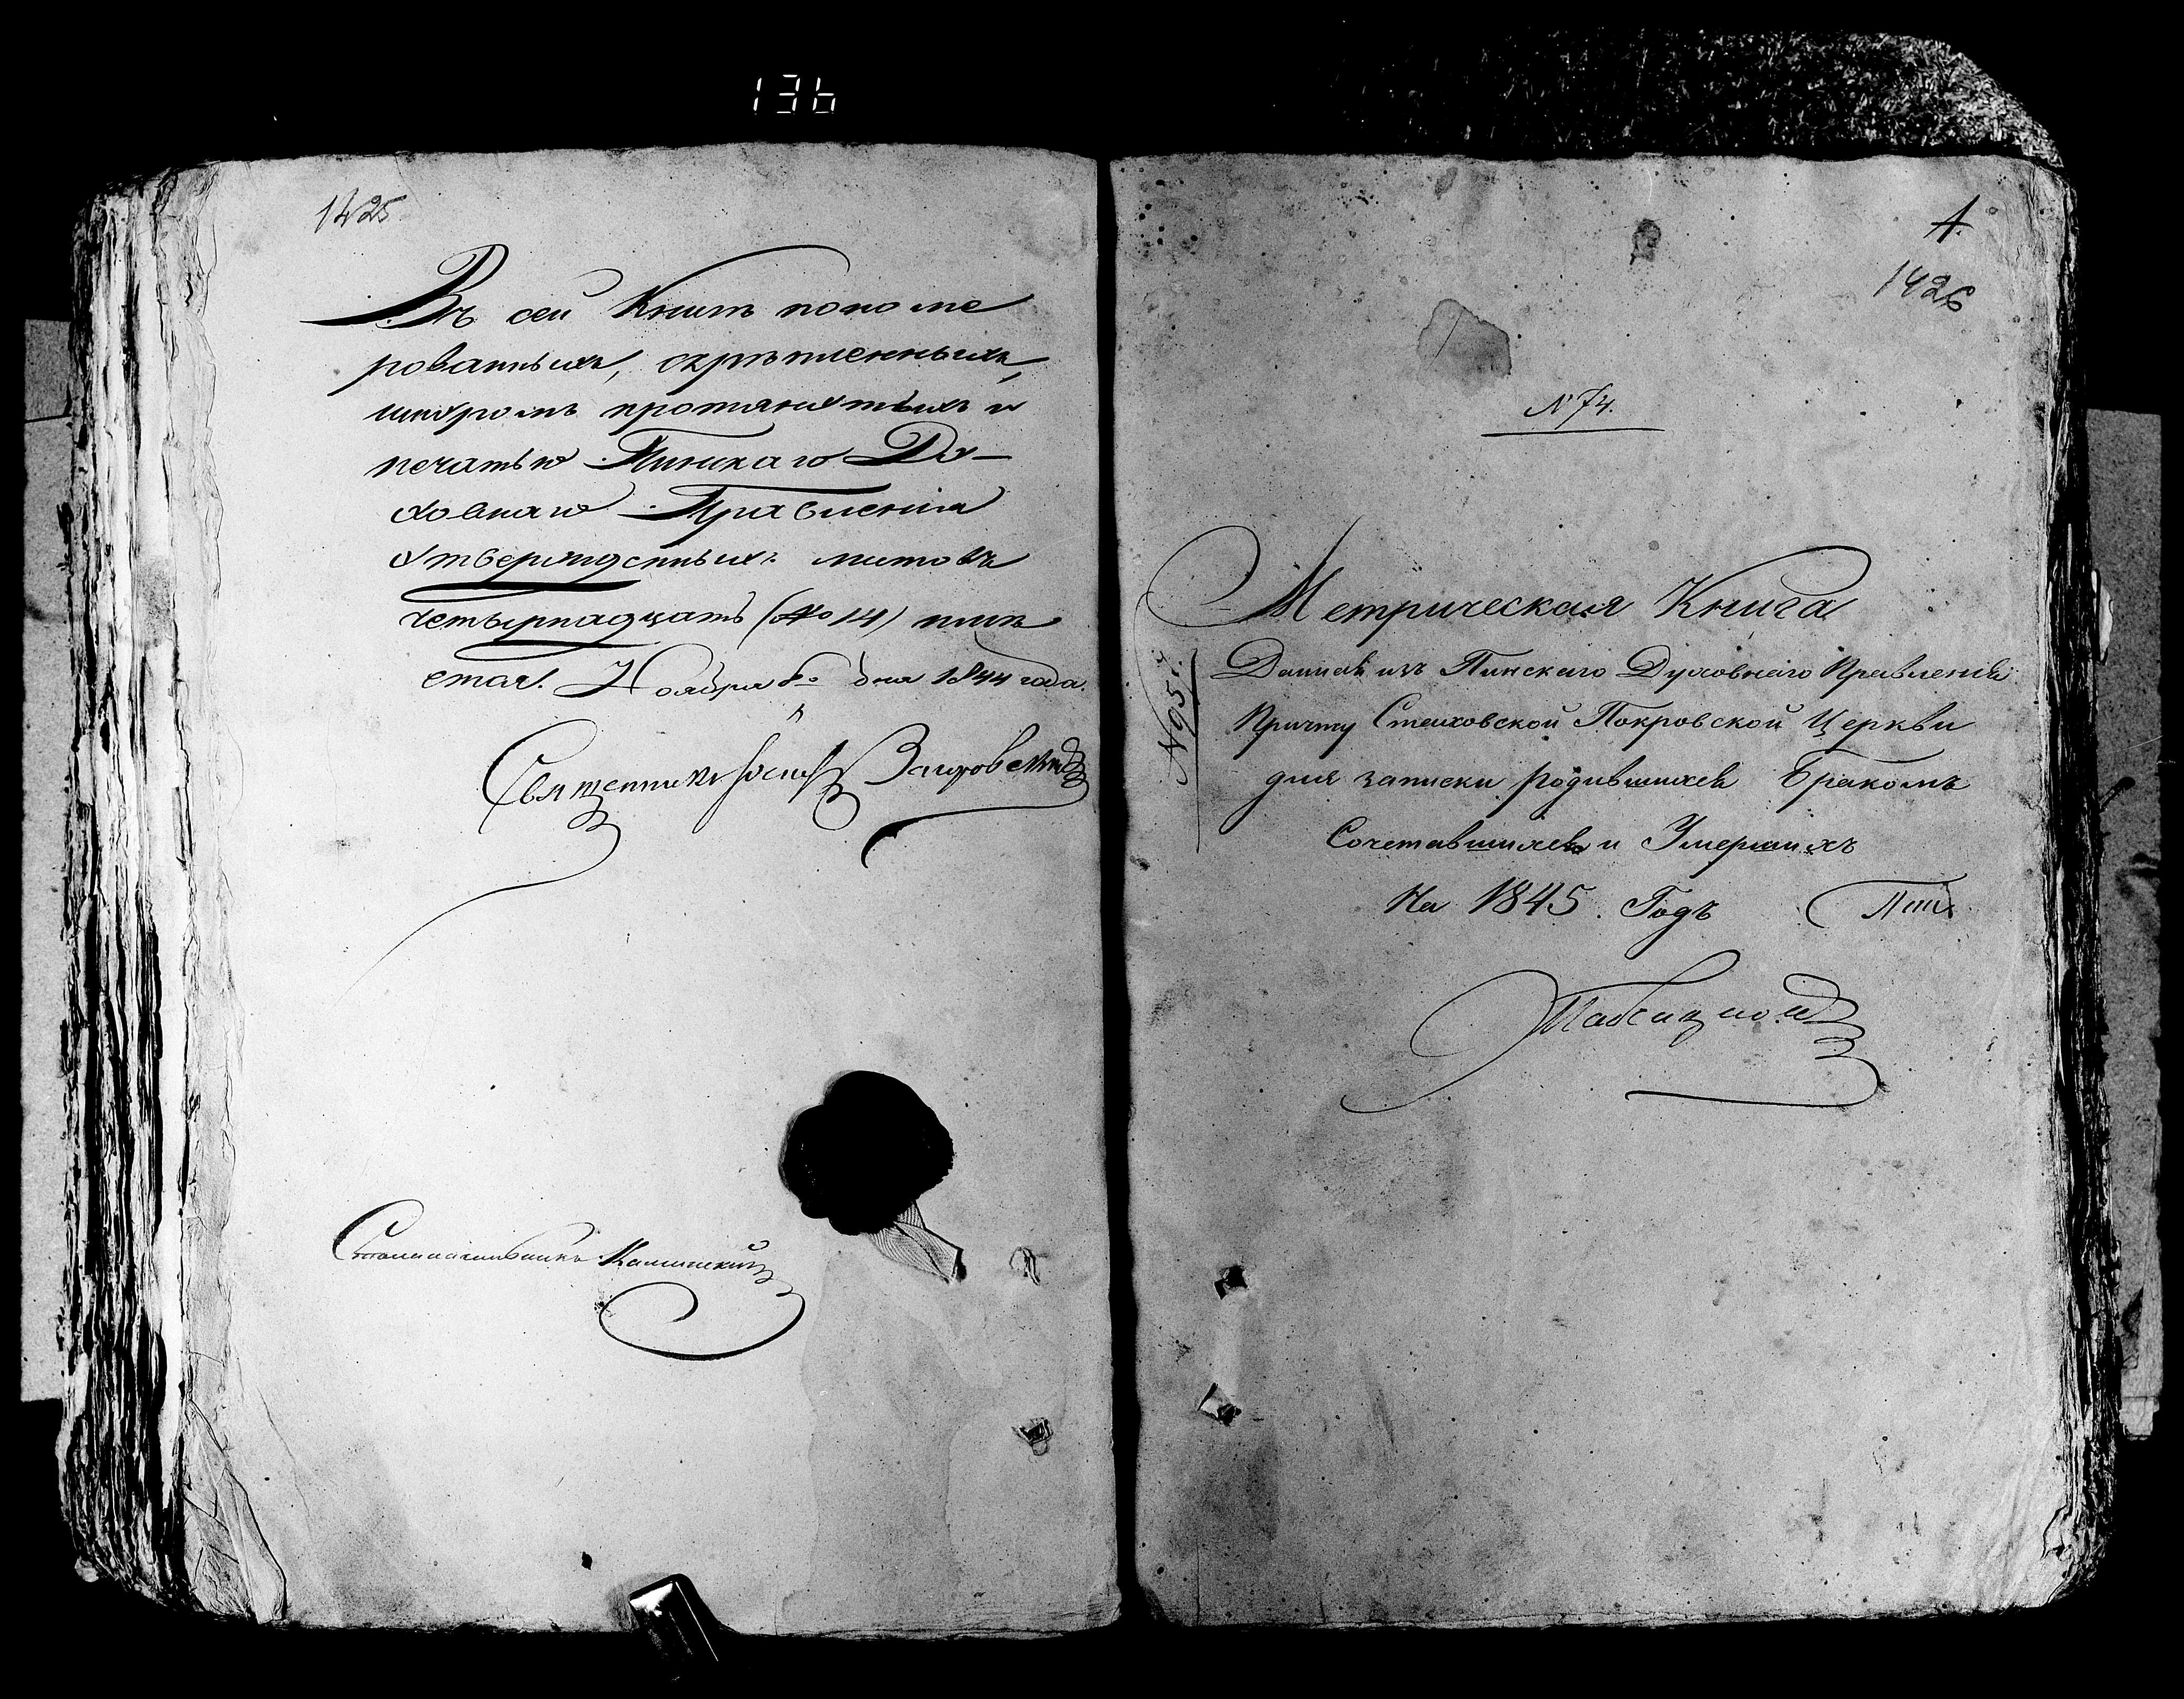 136
1425
Въ сей Книгѣ пономе
рованныхъ, скрѣпленныхъ,
шнуромъ протянутыхъ и
печатью Пинскаго Ду-
ховнаго Правленія
утвержденныхъ листовъ
четырнадцать (№ 14) пип
стая. Ноября 8 дня 1844 года.
Священникъ Іосифъ
Столоначальникъ Калинскій
1.
1426
№ 74.
№ 95.
Метрическая Книга
Данная изъ Пинскаго Духовнаго Правленія
Причту Стаховской Покровской Церкви
для записки родившихся Бракомъ
Сочетавшихся и Умершихъ
На 1845. Годъ